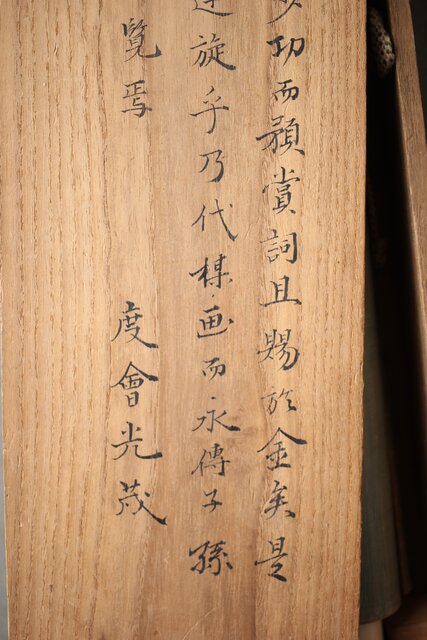 功而賞詞且賜於金矣是
旋乎乃代楳画而永傳子孫
覧焉
度會光茂